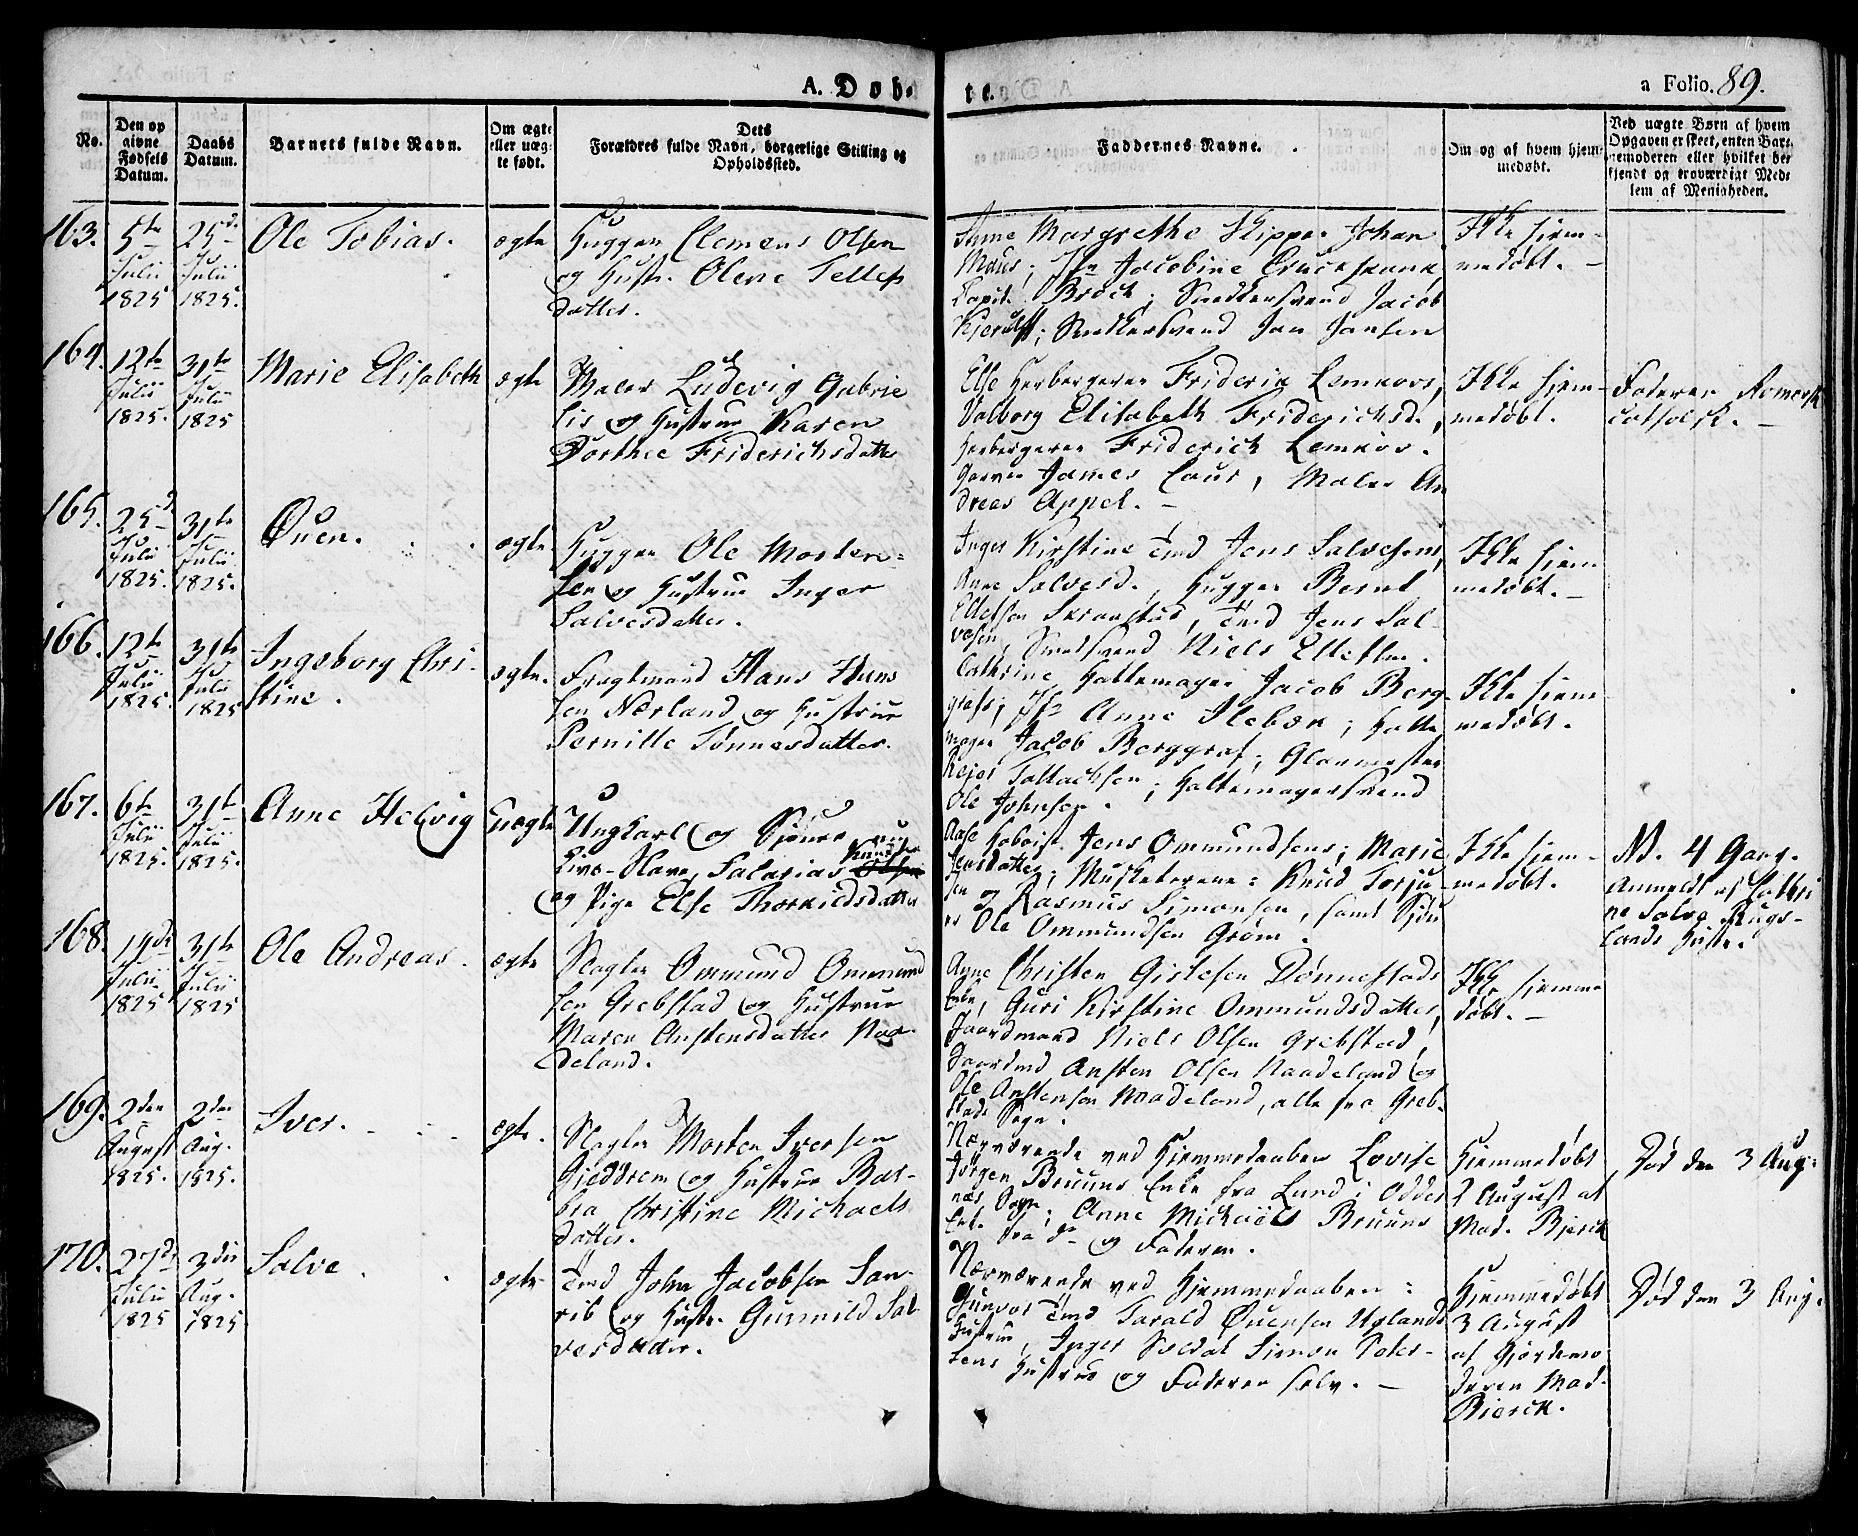 A. Døb-
te.
a Folio. 89.
No.
Den op
givne
Fødsels
Datum.
Daabs
Datum.
Barnets fulde Navn.
Om ægte
eller uæg-
te født.
Dets
Forældres fulde Navn, borgerlige Stilling og
Opholdssted.
Faddernes Navne.
Om og af hvem hjem-
medøbt.
Ved uægte Børn af hvem
Opgaven er skeet, enten Bar-
nemoderen eller hvilket be-
kjendt og troværdigt Med-
lem af Menigheden.
163.
5te
Julii
1825
25de
Julii
1825.
Ole Tobias.
ægte
Hugger Clemens Olsen
og Hustr. Olene Tellefs
datter.
Anne Margrethe Skipper Johan
Jfr Jacobine
Capit. Brock; Snedkersvend Jacob
Snedkersvend Jan Jansen
Ikke hjem-
medøbt. -
164.
12te
Julii
1825.
31te
Julii
1825
Marie Elisabeth
ægte
Maler Ludevig Gabrie
lis og Hustrue Karen
Dorthee Friderichsdatter
Else Herbergerer Friderik Lemkovs,
Valborg Elisabeth Friderichsd.,
Herbergerer Friderich Lemkov.
James Maler An
dreas Appel. -
Ikke hjem-
medøbt.
Faderen Romersk
catholsk. -
165.
25de
Julii
1825.
31te
Julii
1825.
Øuen.
ægte
Hugger Ole Morten-
sen og Hustrue Inger
Salvesdatter.
Inger Kirstine Tmd Jens Salvesens,
Anne Salvesd., Hugger Bernt
Ellefsen Tmd Jens Sal-
vesen, Niels Ellefsen.
Ikke hjem
medøbt. -
166.
12te
Julii
1825.
31te
Julii
1825
Ingeborg Chri-
stine.
ægte.
Fragtmand Hans Hans
sen Nærland og Hustrue
Pernille Tønnesdatter.
Cathrine Hattemager Jacob Berg-
grafs; Jfr Anne Ilebæk; Hatte
mager Jacob Berggraf; Glarmester
Rejer Tallachsen; Hattemagersvend
Ole Johnsen.
Ikke hjem
medøbt.
167.
6te
Julii
1825.
31te
Julii
1825.
Anne Helvig
Uægte
Ungkarl og
Livs-Slave, Knudsen
og Pige Else Thorkildsdatter
Aase Hoboist Jens Ommundsens; Marie
Jensdatter; Musketerene: Knud Torju-
sen og Rasmus Simonsen, samt
Ole Ommundsen Grøm.
Ikke hjem-
medøbt.
NB. 4 Gang.
Anmeldt af Cathri
ne Salve Rugs-
lands Hustr.
168.
14de
Julii
1825
31te
Julii
1825
Ole Andreas.
ægte
Slagter Ommund Ommund
sen Grebstad og Hustrue
Maren Anstensdatter Naa-
deland.
Anne Christen Gislesen Dønnestads
Enke, Guri Kirstine Ommundsdatter,
Gaardmand Niels Olsen Grebstad,
Gaardmd Ansten Olsen Naadeland og
Ole Anstensen Naadeland, alle fra Greb-
stads Sogn.
Ikke hjemme
døbt. -
169.
2den
August
1825.
2den
Aug.
1825.
Iver. - - -
ægte.
Slagter Morten Iversen
Gjeddrem og Hustrue Bar-
bra Christine Michaels
datter.
Nærværende ved Hjemmedaaben Lovise
Jørgen Bruuns Enke fra Lund i Odder
næs Sogn; Anne Michaël Bruuns
Enke fra do og Faderen.
Hjemmedøbt
2 August af
Mad. Bjerck
Død den 3 Aug.
170.
27de
Julii
1825
3die
Aug.
1825
Salve
ægte
Tmd John Jacobsen San-
vib og Hustr. Gunnild Sal
vesdatter.
Nærværende ved Hjemmedaaben:
Gunvor Tmd Tarald Øuensen Uglands
Hustrue, Inger Soldat Simon Peter-
sens Hustrue og Faderen selv. -
Hjemmedøbt
3 August
af Gjordemo
deren Mad.
Bierck.
Død den 3 Aug.